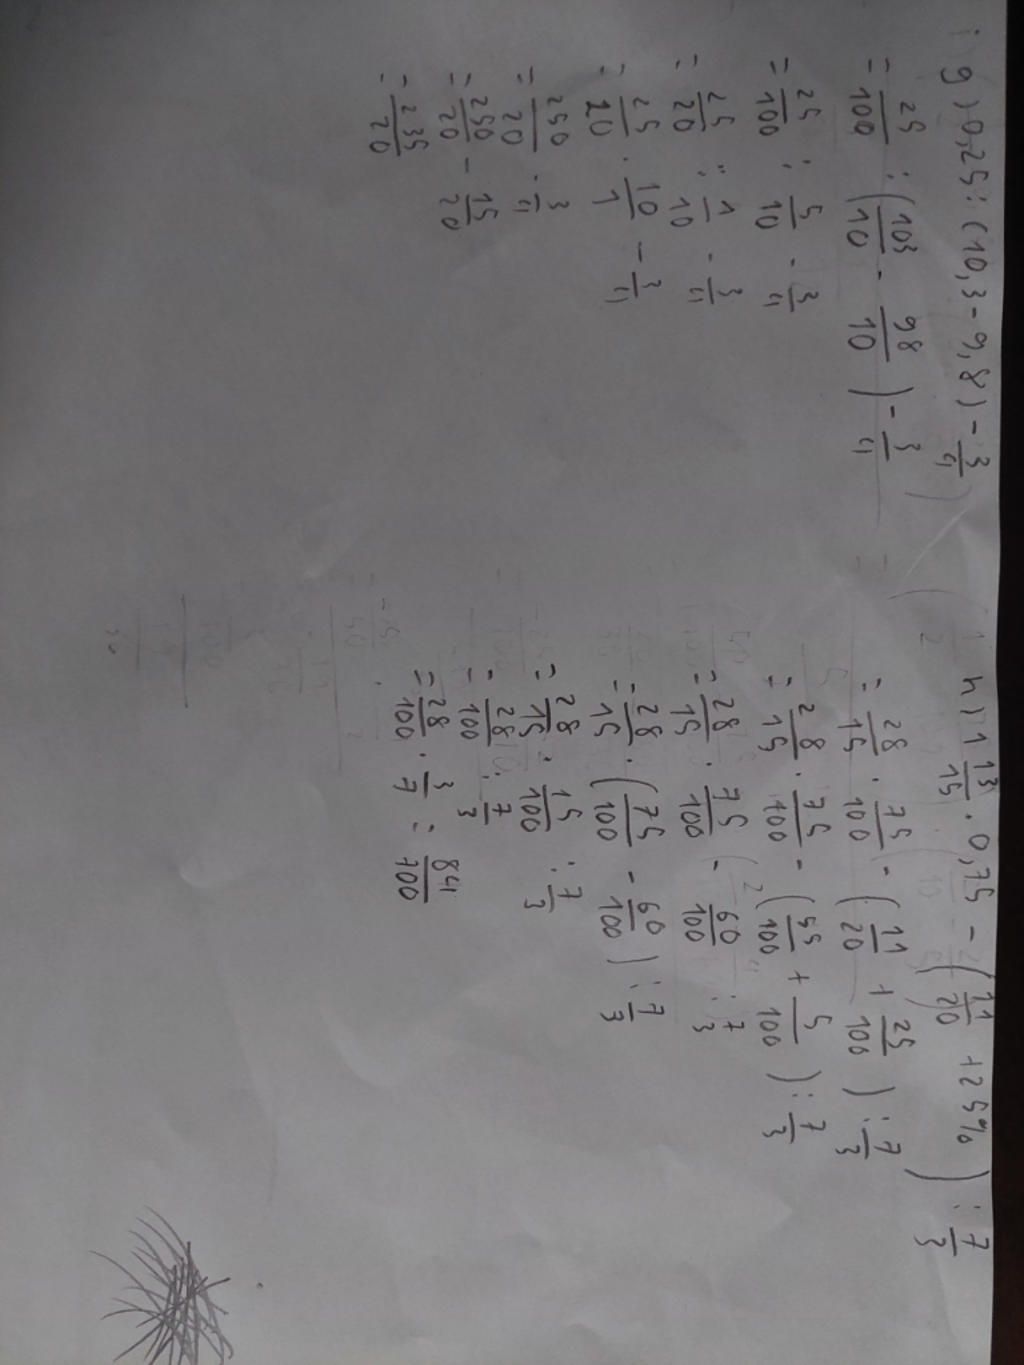 g) 0,25 : (10,3 - 9,8) - 3/4
= 25/100 : (103/10 - 98/10) - 3/4
= 25/100 : 5/10 - 3/4
= 25/20 : 1/10 - 3/4
= 25/20 · 10/1 - 3/4
= 250/20 - 3/4
= 250/20 - 15/20
= 235/20
h) 1 13/15 · 0,75 - (11/20 + 25%) : 7/3
= 28/15 · 75/100 - (11/20 + 25/100) : 7/3
= 28/15 · 75/100 - (55/100 + 5/100) : 7/3
= 28/15 · 75/100 - 60/100 : 7/3
= 28/15 · (75/100 - 60/100) : 7/3
= 28/15 · 15/100 : 7/3
= 28/100 : 7/3
= 28/100 · 3/7 = 84/700